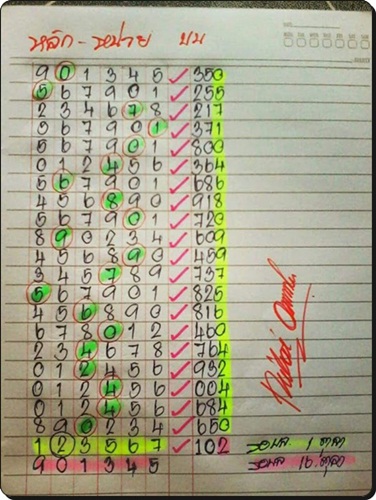 หลัก - หน่วย บน
9 0 1 3 4 5 ✓ 350
5 6 7 9 0 1 ✓ 255
2 3 4 6 7 8 ✓ 217
5 6 7 9 0 1 ✓ 371
5 6 7 9 0 1 ✓ 800
0 1 2 4 5 6 ✓ 364
5 6 7 9 0 1 ✓ 686
4 5 6 8 9 0 ✓ 918
5 6 7 9 0 1 ✓ 720
8 9 0 2 3 4 ✓ 609
4 5 6 8 9 0 ✓ 459
3 4 5 7 8 9 ✓ 737
5 6 7 9 0 1 ✓ 825
4 5 6 8 9 0 ✓ 816
6 7 8 0 1 2 ✓ 460
2 3 4 6 7 8 ✓ 764
0 1 2 4 5 6 ✓ 932
0 1 2 4 5 6 ✓ 004
0 1 2 4 5 6 ✓ 684
8 9 0 2 3 4 ✓ 650
1 2 3 5 6 7 ✓ 102 รอผล 1 ตุลา
9 0 1 3 4 5 รอผล 16 ตุลา